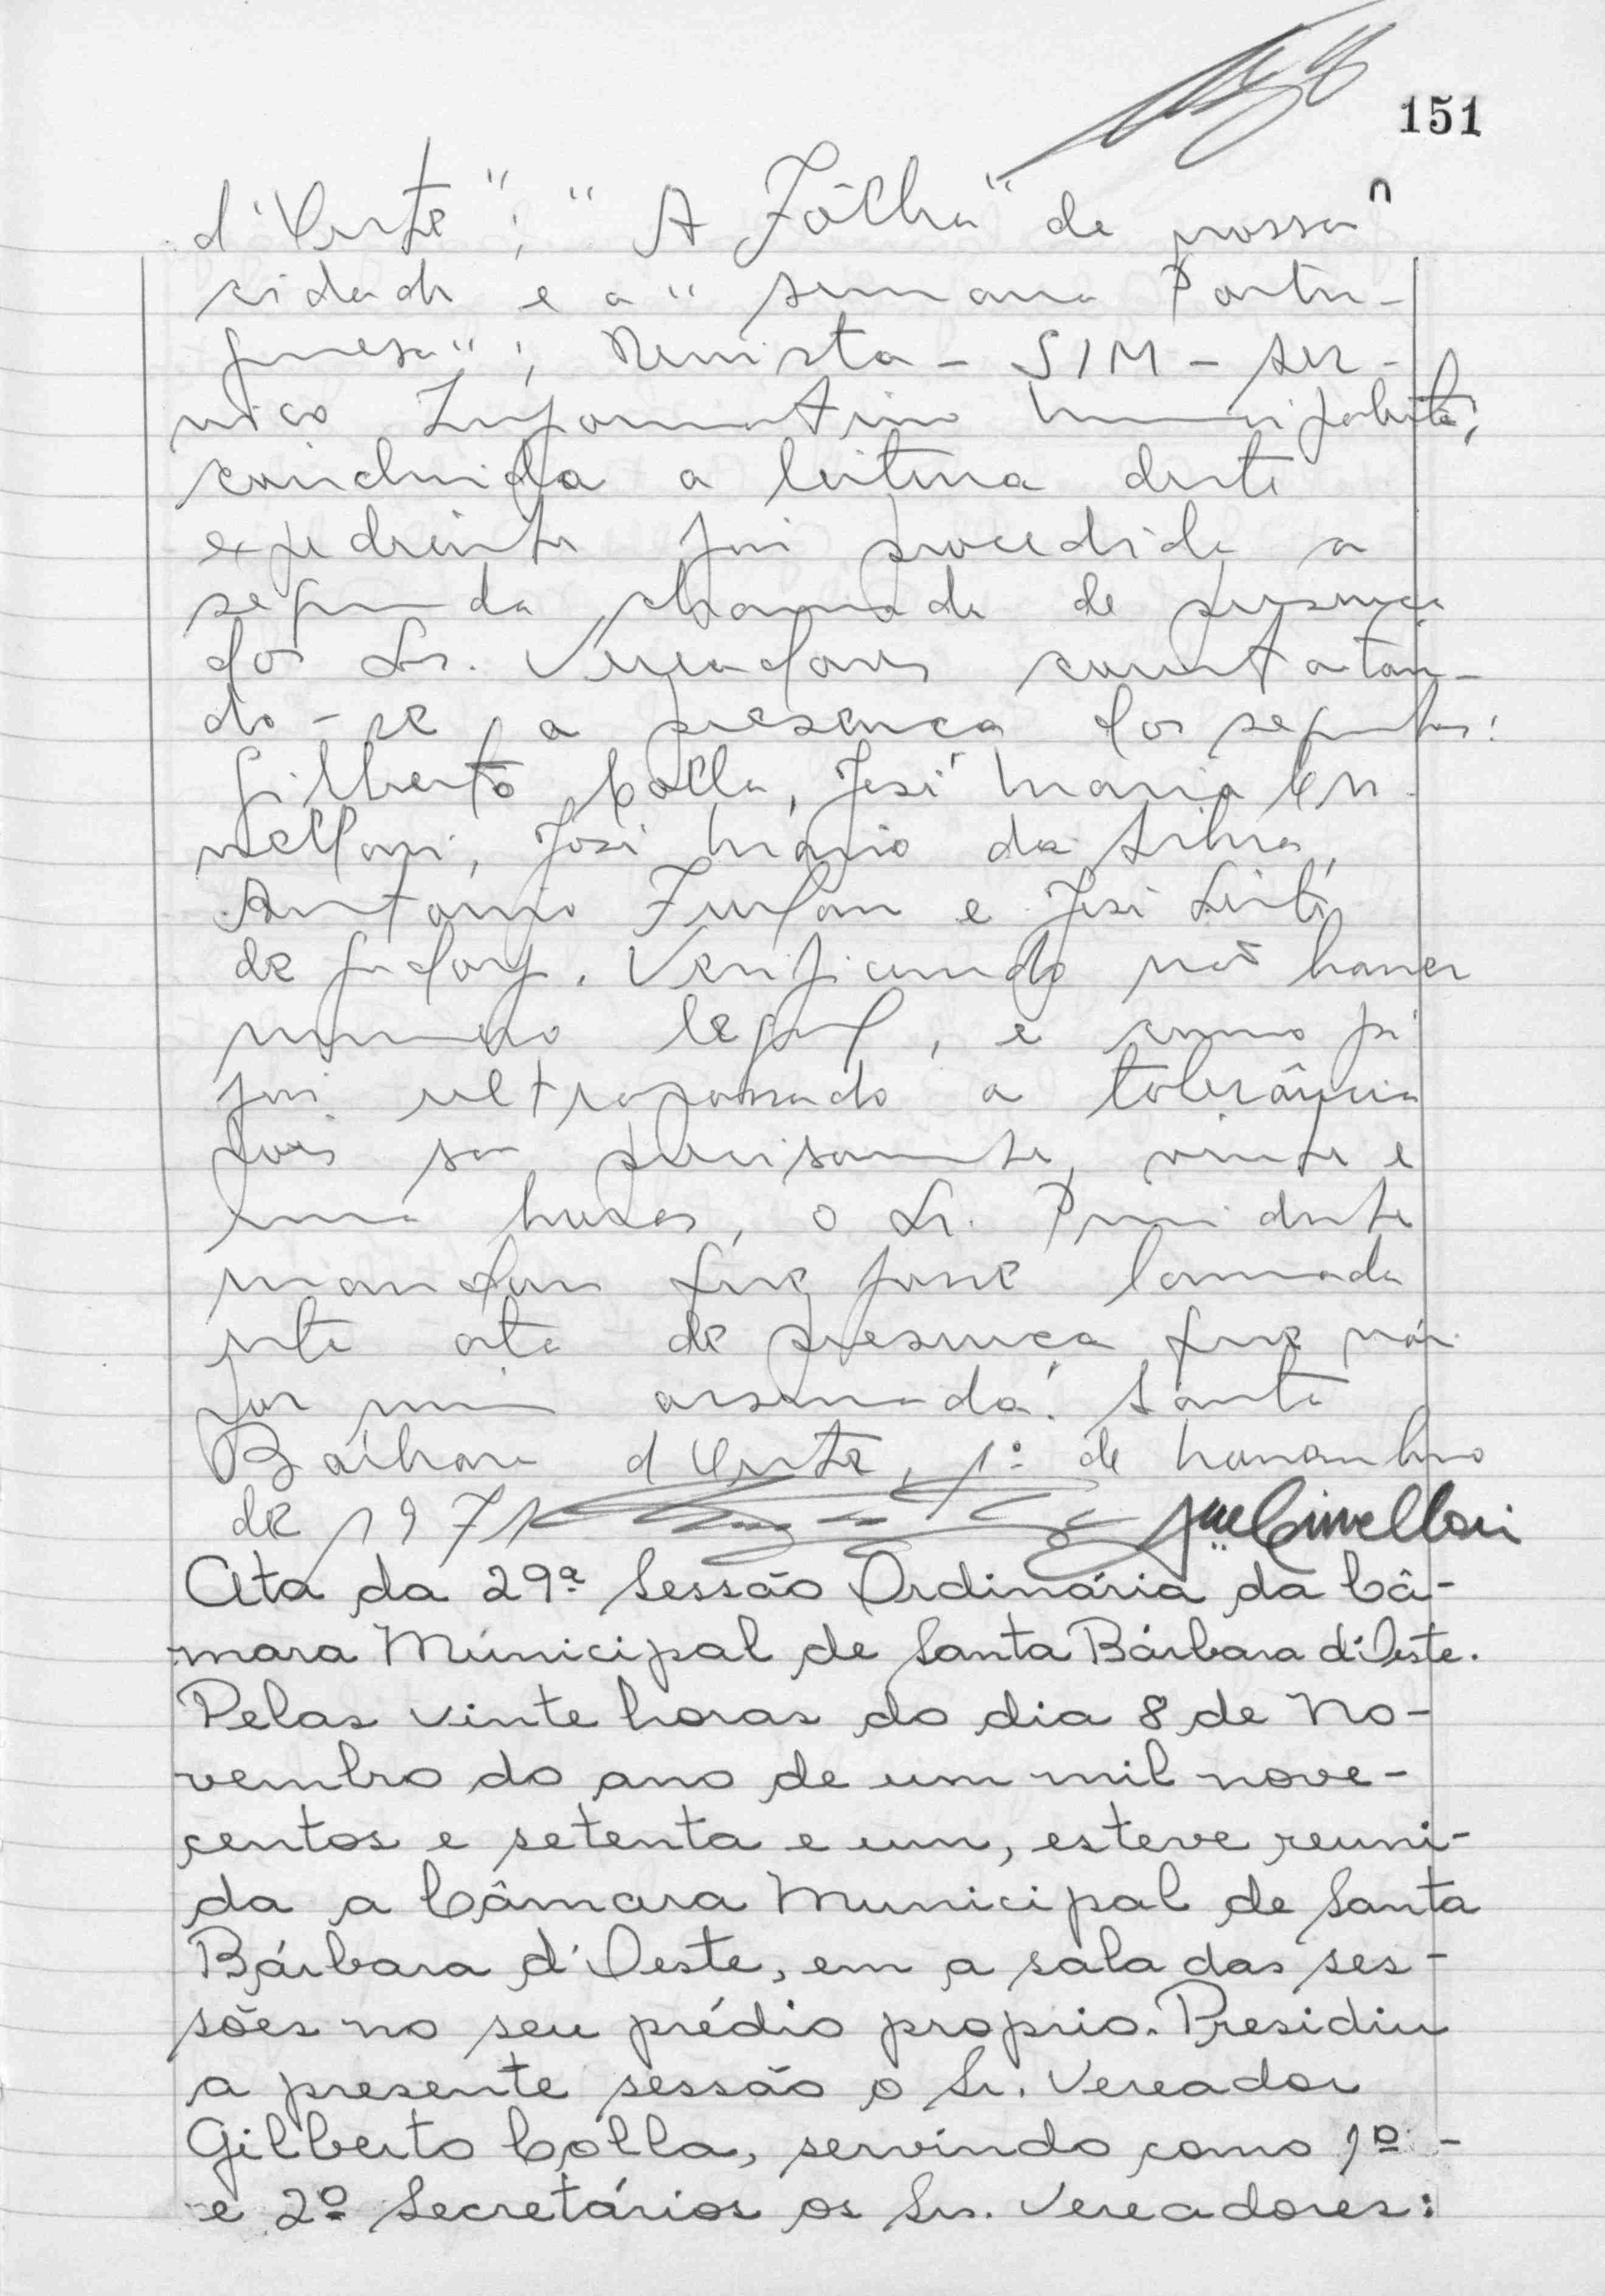 151
d'Oeste"; "A Fôlha" de nossa
cidade e a "semana Portu-
guesa"; Revista - SIM - ser-
viço Informativo Municipalista;
concluida a leitura deste
expediente foi procedida a
segunda chamada de presença
dos Srs. Vereadores constatan-
do-se a presença dos seguintes:
Gilberto Colla, José Maria
José Mário da Silva,
Antonio Furlan e José Leite
de Godoy. Verificando não haver
numero legal, e como já
foi ultrapassado a tolerância
pois são precisamente, vinte e
uma horas, o Sr. Presidente
mandou que fosse lavrada
esta ata de presença que vai
por mim assinada. Santa
Bárbara d'Oeste, 1º de Novembro
de 1971
Ata da 29ª Sessão Ordinária da Câ-
mara Municipal de Santa Bárbara d'Oeste.
Pelas vinte horas do dia 8 de No-
vembro do ano de um mil nove-
centos e setenta e um, esteve reuni-
da a Câmara Municipal de Santa
Bárbara d'Oeste, em a sala das ses-
sões no seu prédio proprio. Presidiu
a presente sessão o Sr. Vereador
Gilberto Colla, servindo como 1º -
e 2º Secretários os Srs. Vereadores: